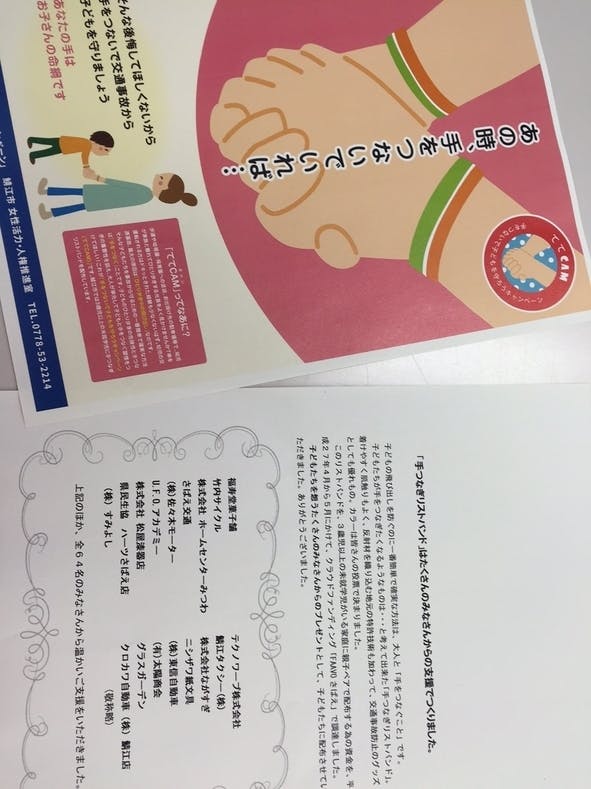 あの時、手をつないでいれば…
ててCAM
手をつないで子どもを守ろうキャンペーン
そんな後悔してほしくないから
手をつないで交通事故から
子どもを守りましょう
あなたの手は
お子さんの命綱です
「ててCAM」ってなあに?
鯖江市 女性活力・人権推進室 TEL.0778-53-2214
「手つなぎリストバンド」はたくさんのみなさんからの支援でつくりました。
子どもの飛び出しを防ぐのに一番簡単で確実な方法は、大人と「手をつなぐこと」です。
子どもたちが手をつなぎたくなるようなものは・・・と考えて出来た「手つなぎリストバンド」。
着けやすく肌触りもよく、反射材を織り込む地元の特許技術も加わって、交通事故防止のグッズ
としても優れもの。カラーは皆さんの投票で決まりました。
このリストバンドを、3歳児以上の未就学児がいる家庭に親子ペアで配布する為の資金を、平
成27年4月から5月にかけて、クラウドファンディング「FAAVOさばえ」で調達しました。
子どもたちを想うたくさんのみなさんからのプレゼントとして、子どもたちに配布させてい
ただきました。ありがとうございました。
福寿堂菓子舗 テクノワープ株式会社
竹内サイクル 鯖江タクシー(株)
株式会社 ホームセンターみつわ 株式会社ながすぎ
さばえ交通 ニシザワ紙文具
(株)佐々木モーター (株)東信自動車
U.F.O.アカデミー (有)太陽商会
株式会社 松屋漆器店 グラスガーデン
県民生協 ハーツさばえ店 クロカワ自動車(株)鯖江店
(株)すみよし (敬称略)
上記のほか、全64名のみなさんから温かいご支援をいただきました。